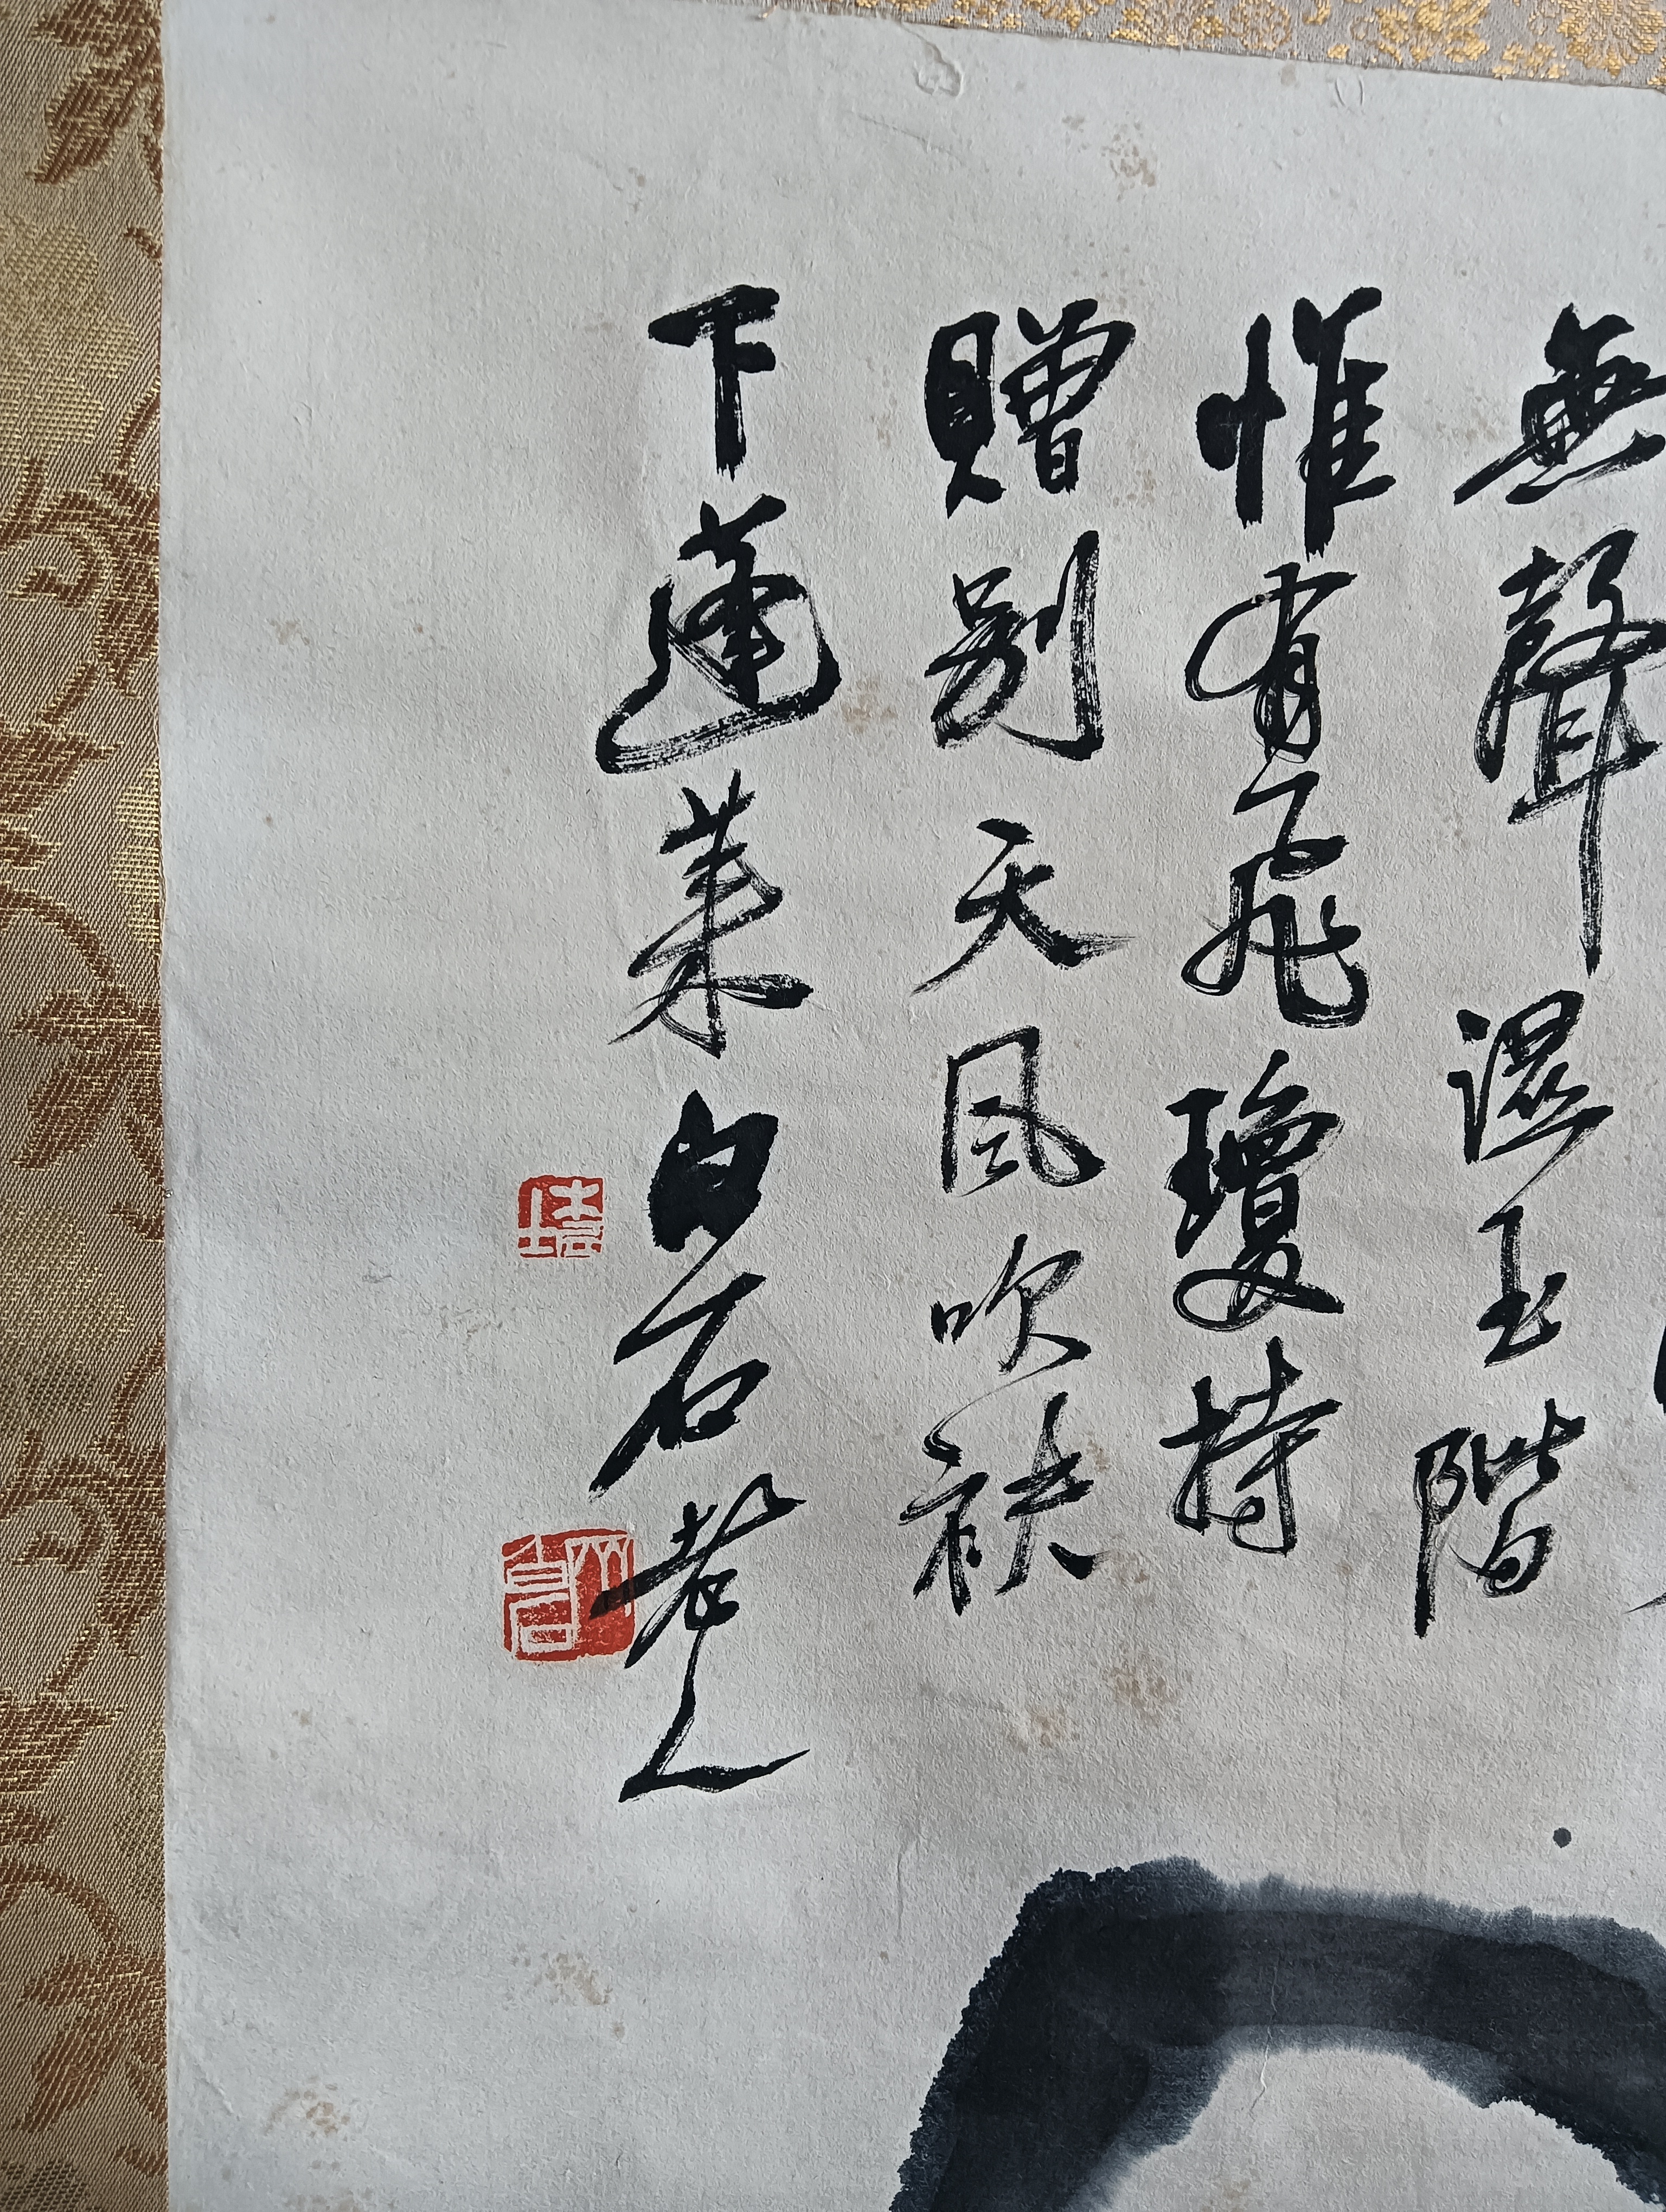 無聲 濕玉階
惟有飛瓊持
贈别天風吹袂
下蓬萊白石老人